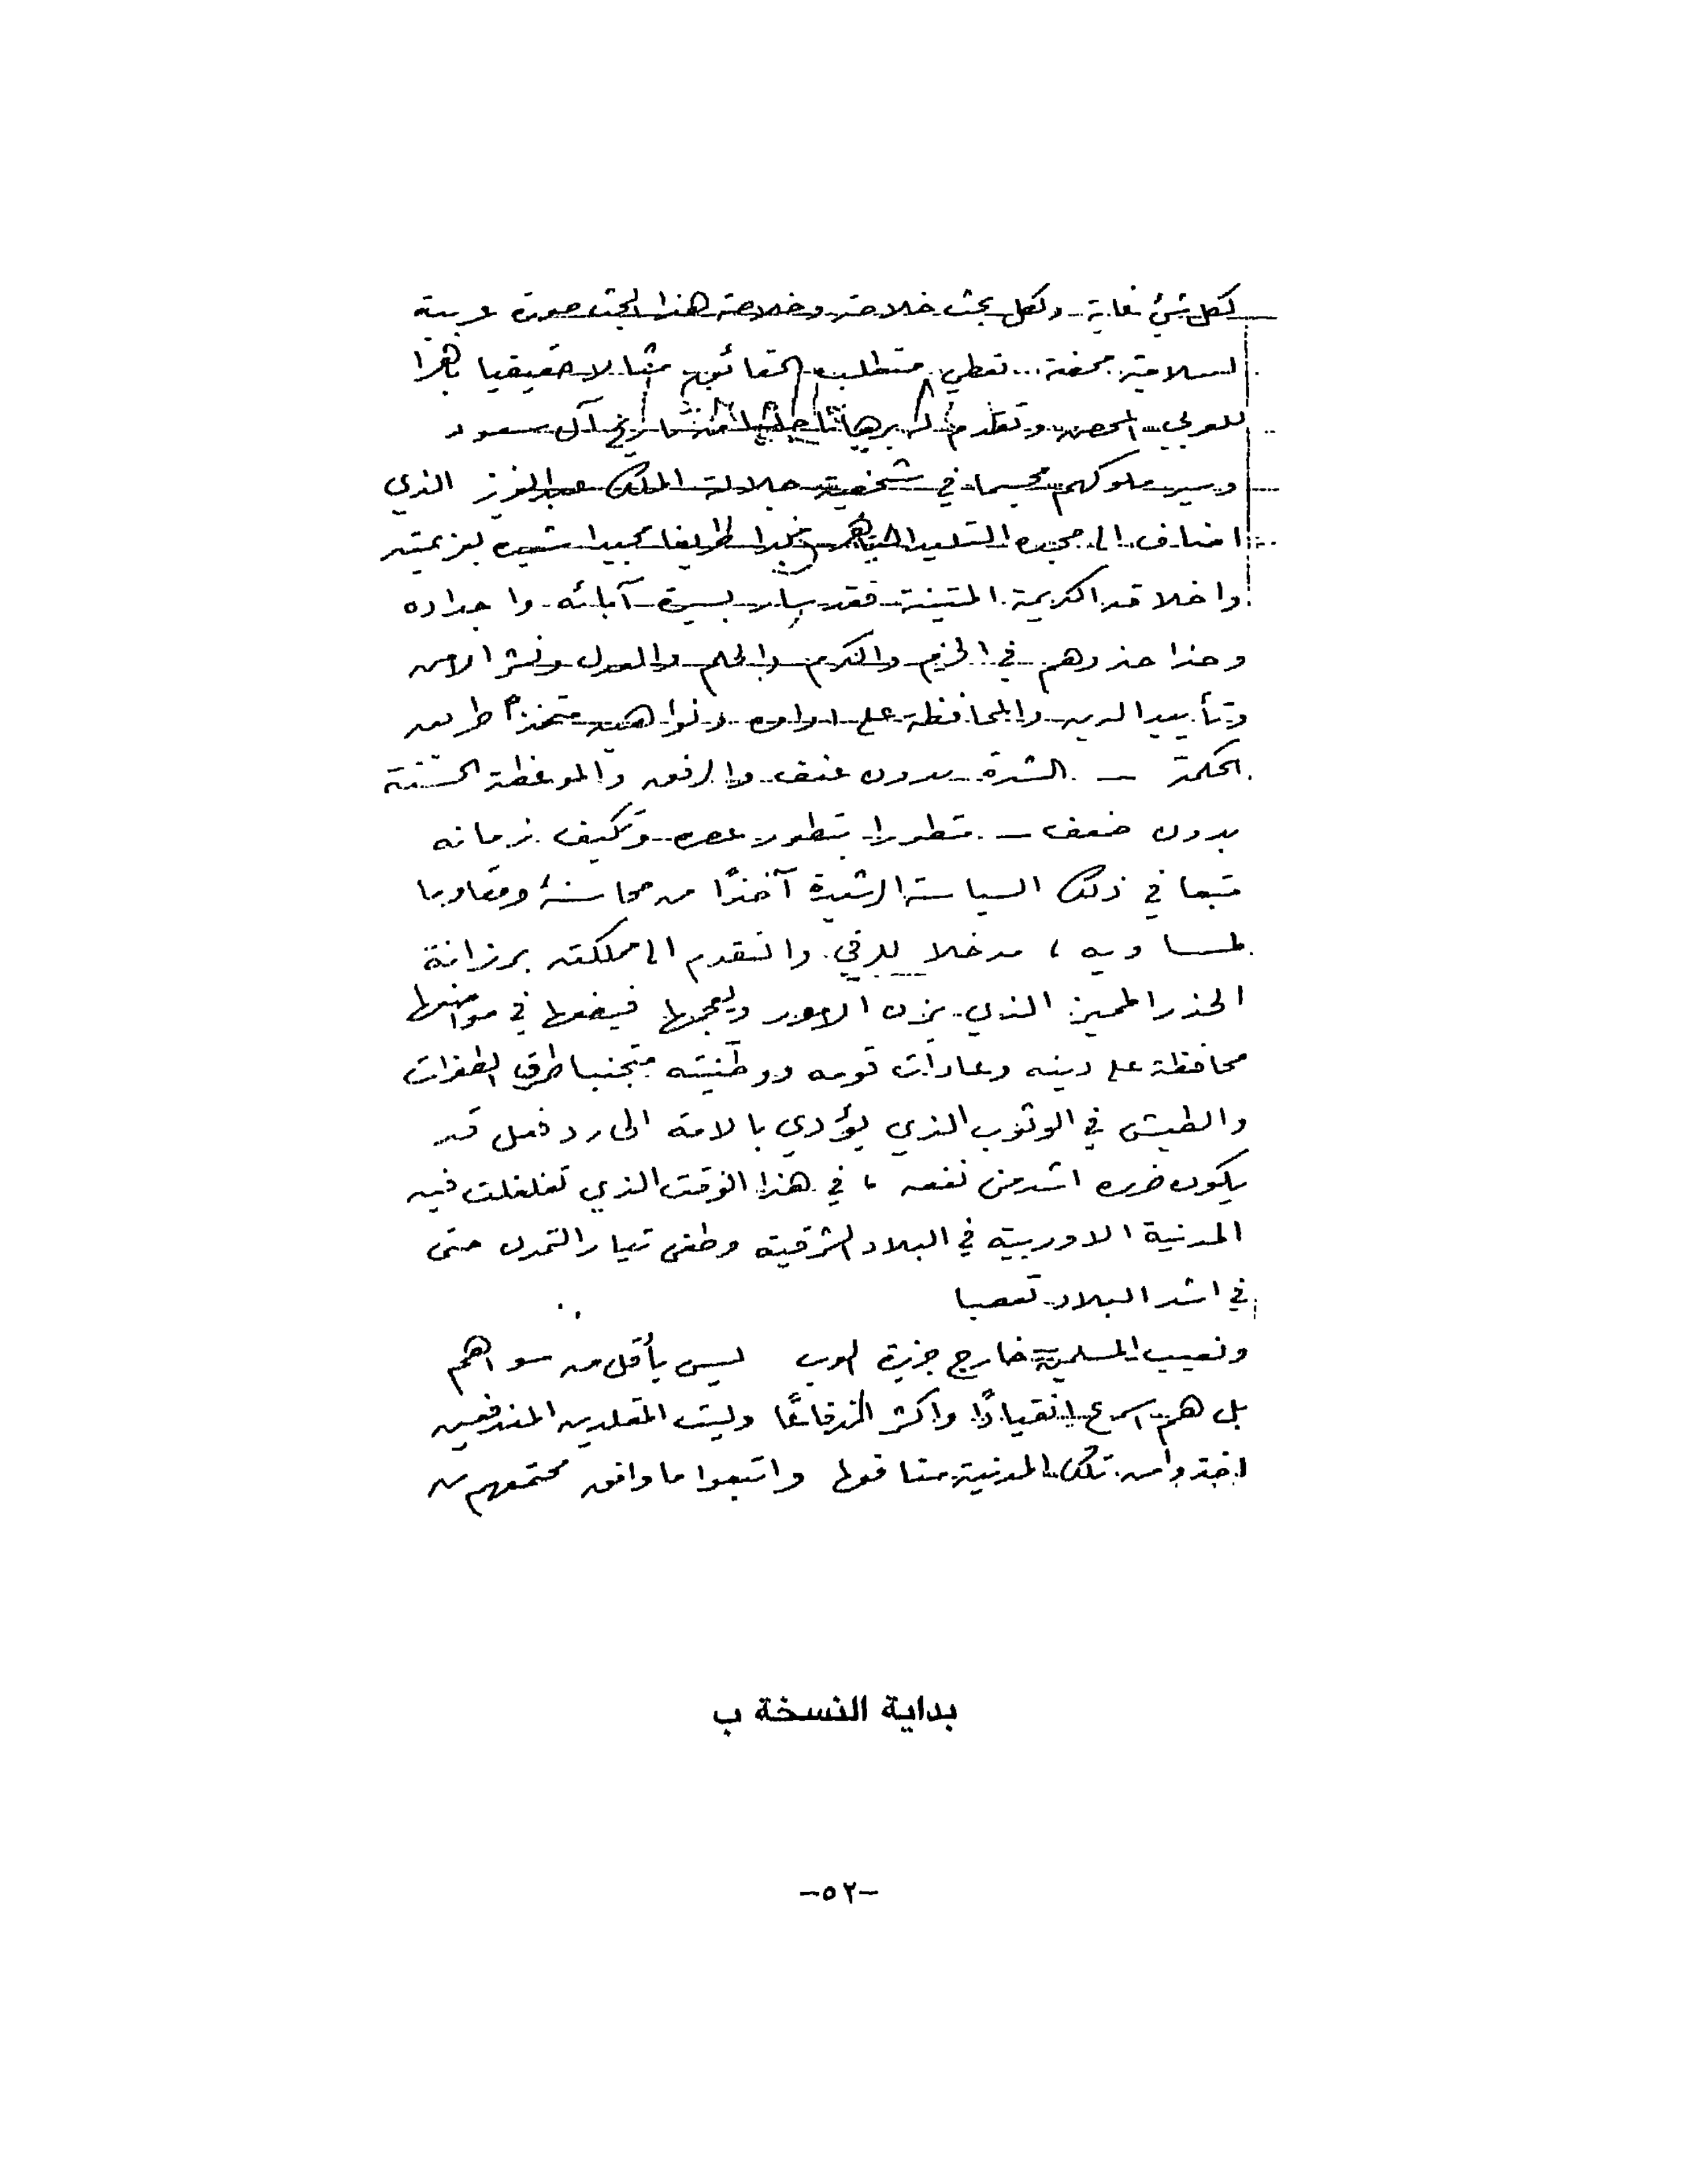 لكل شيء غاية ولكل بحث خلاصة وخلاصة هذا البحث صورة عربية
اسلامية محضة .. تعطي متطلب الحقائق مثالا حقيقيا باهرا
للعربي المحض وتقدم له برهانا جليا من تاريخ آل سعود
وسير ملوكهم مجسما في شخصية جلالة الملك عبد العزيز الذي
اضاف الى مجده التليد مجدا طريفا مجيدا شيده بعزيمته
واخلاقه الكريمة المتينة فقد سار بسيرة آبائه واجداده
وحذا حذوهم في الحزم والكرم والحلم والعدل ونشر الامن
وتأييد الدين والمحافظة على اوامره ونواهيه متخذاً طريق
الحكمة – الشدة بدون عنف والرفق والموعظة الحسنة
بدون ضعف – متطورا بتطور عصره وتكيف زمانه
متبعا في ذلك السياسة الرشيدة آخذًا من محاسنه ومقاوما
لمساويه ، مدخلا للرقي والتقدم الى مملكته برزانة
الحذر المميز الذي يزن الامور ويعجمها فيضعها في مواضعها
محافظة على دينه وعادات قومه ووطنيته متجنبا طرق الطفرات
والطيش في الوثوب الذي يؤدي بالامة الى رد فعل قد
يكون ضرره اشد من نفعه ، في هذا الوقت الذي تغلغلت فيه
المدنية الاوربية في البلاد الشرقية وطغى تيار التمدن حتى
في اشد البلاد تعصبا
ونصيب المسلمين خارج جزيرة العرب ليس بأقل من سواهم
بل هم اسرع انقيادًا واكثر اندفاعًا وليت المقلدين المندفعين
اخذوا من تلك المدنية منافعها واتبعوا ما وافق مجتمعهم من
بداية النسخة ب
-٥٢-